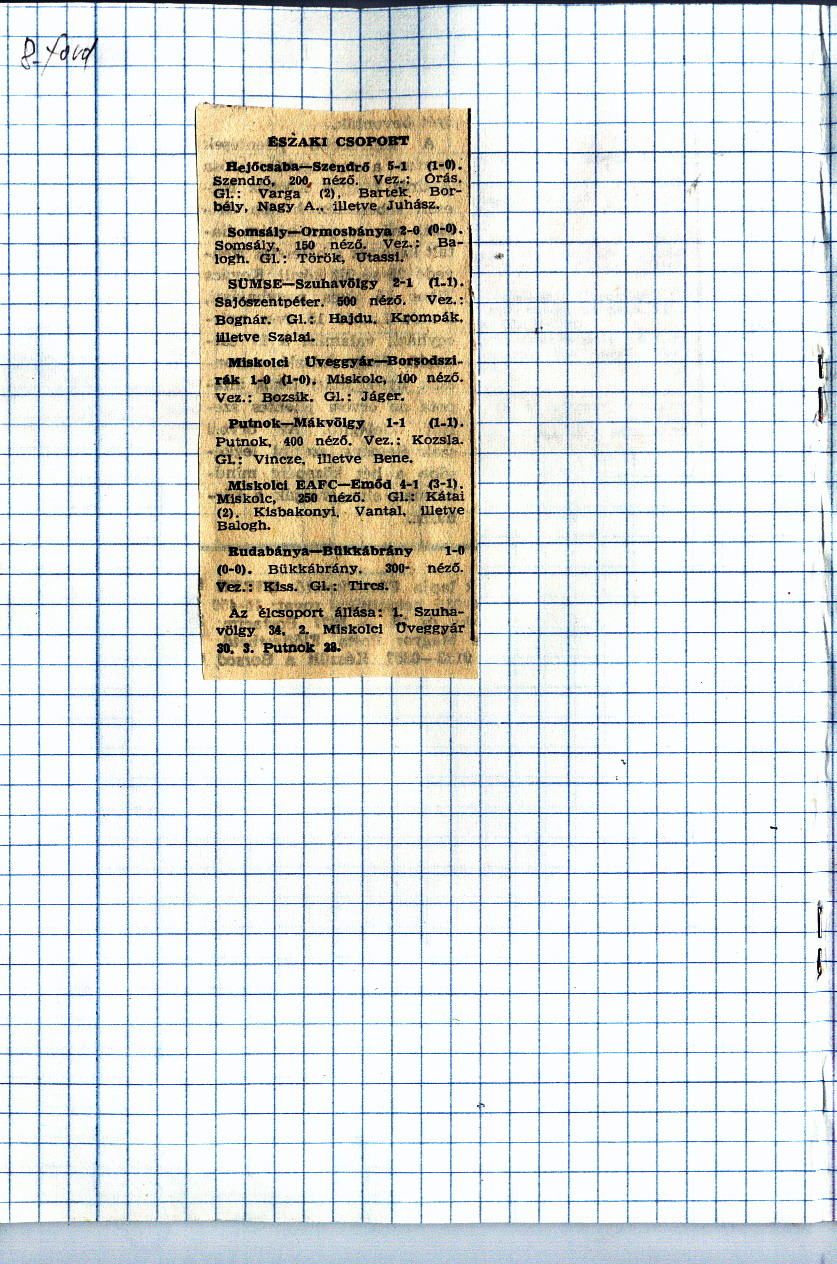 8. ford
ÉSZAKI CSOPORT
Hejőcsaba—Szendrő 5-1 (1-0).
Szendrő, 200 néző. Vez.: Órás.
Gl.: Varga (2), Bartek, Bor-
bély, Nagy A., illetve Juhász.
Somsály—Ormosbánya 2-0 (0-0).
Somsály, 150 néző. Vez.: Ba-
logh. Gl.: Török, Utassi.
SÜMSE—Szuhavölgy 2-1 (1-1).
Sajószentpéter, 500 néző. Vez.:
Bognár. Gl.: Hajdu, Krompák,
illetve Szalai.
Miskolci Üveggyár—Borsodszi-
rák 1-0 (1-0). Miskolc, 100 néző.
Vez.: Bozsik. Gl.: Jáger.
Putnok—Mákvölgy 1-1 (1-1).
Putnok, 400 néző. Vez.: Kozsla.
Gl.: Vincze, illetve Bene.
Miskolci EAFC—Emőd 4-1 (3-1).
Miskolc, 250 néző. Gl.: Kátai
(2), Kisbakonyi, Vantal, illetve
Balogh.
Rudabánya—Bükkábrány 1-0
(0-0). Bükkábrány, 300 néző.
Vez.: Kiss. Gl.: Tircs.
Az élcsoport állása: 1. Szuha-
völgy 34, 2. Miskolci Üveggyár
30, 3. Putnok 28.